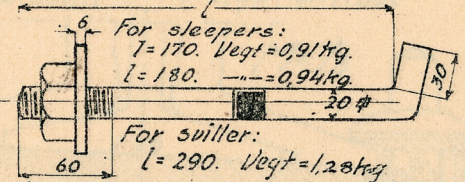 l
6
For sleepers:
l=170. Vegt=0,91kg.
l=180. —„—=0,94kg.
30
20 ф
For sviller:
60
l=290. Vegt=1,28kg